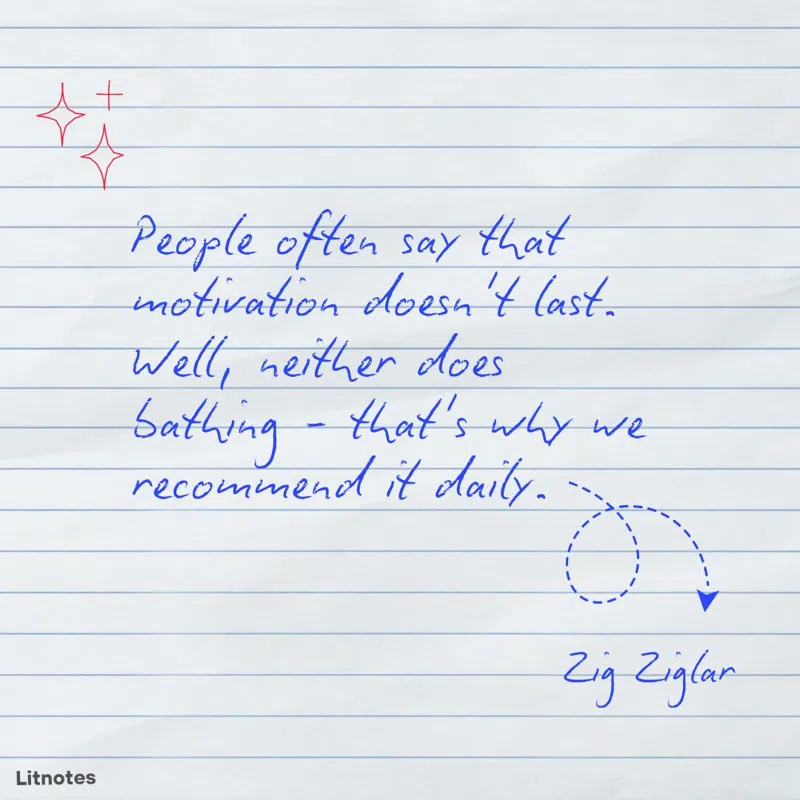 People often say that
motivation doesn't last.
Well, neither does
bathing – that's why we
recommend it daily.
Zig Ziglar
Litnotes